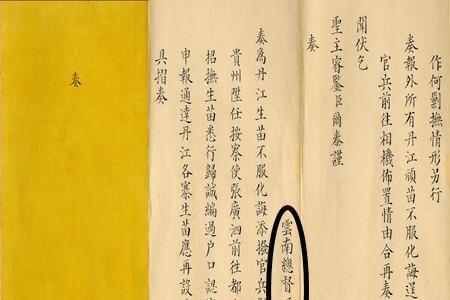 作何剿撫情形另行
奏報外所有丹江頑苗不服化誨逞
官兵前往相機佈置情由合再奏
聞伏乞
聖主睿鑒臣爾泰謹
奏
雲南總督
奏為丹江生苗不服化誨添撥官兵
貴州陞任按察使張廣泗前往都
招撫生苗悉行歸誠編過户口認
申報通達丹江各寨生苗應再設
具摺奏
奏